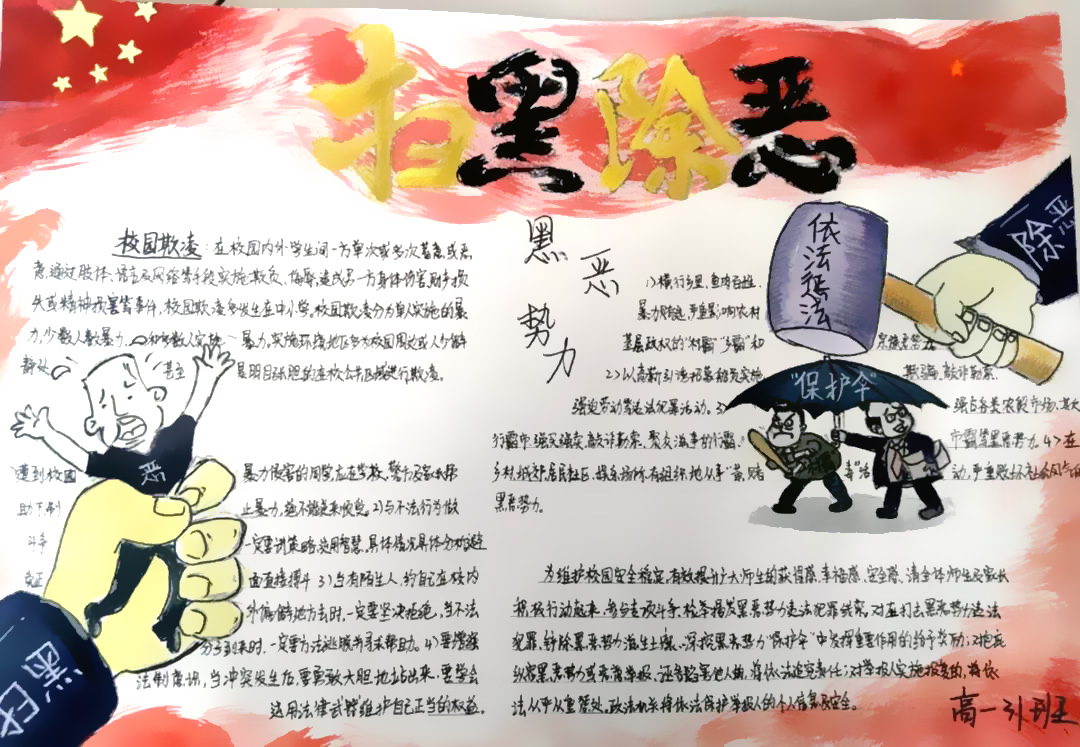 扫黑除恶
校园欺凌：在校园内外学生间一方单次或多次蓄意或恶
意通过肢体、语言及网络等手段实施欺负、侮辱，造成另一方身体伤害、财产损
失或精神损害等事件，校园欺凌多发生在中小学，校园欺凌分为单人实施的暴
力，少数人数暴力，和多数人实施 暴力，实施环境地区多为校园周边或人少僻
静处 甚至 是明目张胆的在校公共区域进行欺凌。
恶
遭到校园 暴力侵害的同学应在学校、警方及家长帮
助下制 止暴力，绝不能逆来顺受。2)与不法行为做
斗争 一定要讲策略，运用智慧，具体情况具体分析，避
免正 面直接搏斗 3)当有陌生人约自己在校内
外偏僻地方去时，一定要坚决拒绝，当不法
分子到来时，一定要方法逃脱并寻求帮助。4)要增强
法制意识，当冲突发生后，要勇敢大胆地站出来，要学会
运用法律武器维护自己正当的权益。
黑恶势力
1)横行乡里，鱼肉百姓，
暴力财 严重影响农村
基层政权的"村霸""乡霸"和 宗族恶势力
2)以高薪引诱招募 实施 欺骗、敲诈勒索、
强迫劳动等违法犯罪活动。3) 强占各类农贸市场、
行霸市、强买强卖、敲诈勒索、聚众滋事的行霸、 市霸等黑恶势力。4>在
乡村、城郊、居民社区、娱乐场所、有组织地从事"黄、赌 毒"活 动，严重败坏社会风气的
黑恶势力。
依法惩治
除恶
"保护伞"
为维护校园安全稳定，有效提升广大师生的获得感、幸福感、安全感，请全体师生及家长
积极行动起来，参与专项斗争，检举揭发黑恶势力违法犯罪线索，对在打击黑恶势力违法
犯罪，铲除黑恶势力滋生土壤、深挖黑恶势力"保护伞"中发挥重要作用的给予奖励；对包庇
纵容黑恶势力或恶意举报、诬告陷害他人的，将依法追究责任；对举报人实施报复的，将依
法从严从重惩处。政法机关将依法保护举报人的个人信息及安全。
扫黑
高一31班